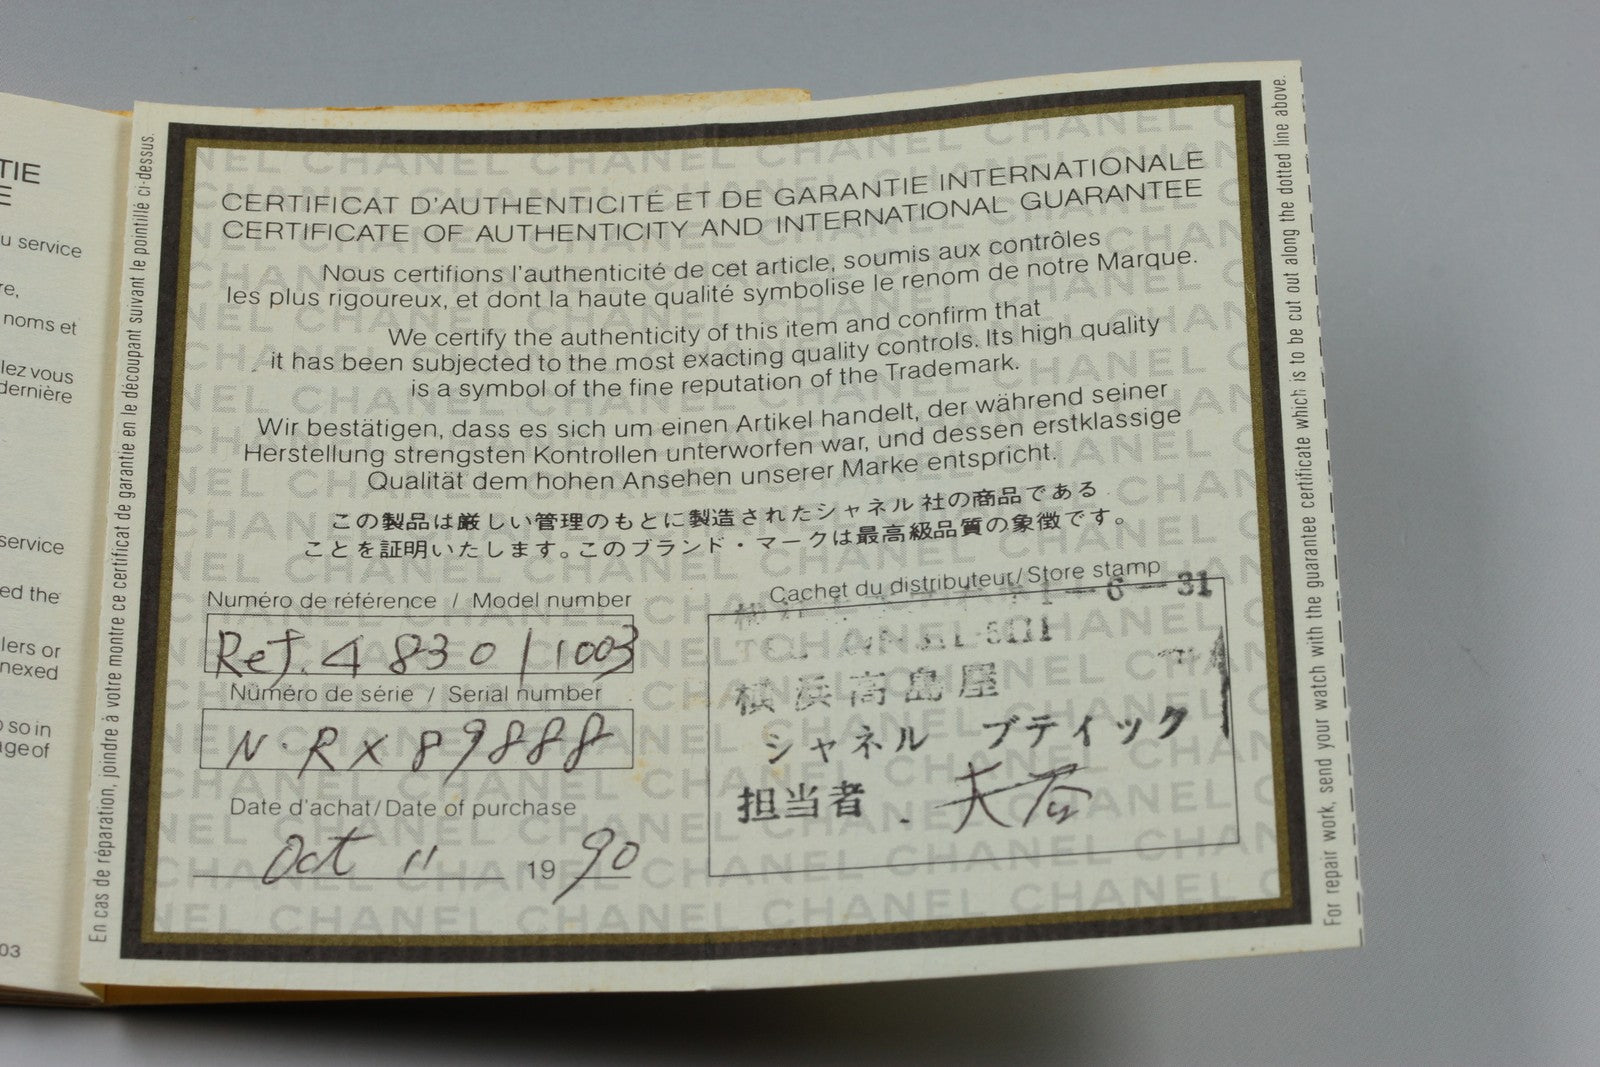 TIE
E
u service
re,
noms et
lez vous
dernière
service
ed the
lers or
nexed
so in
age of
03
En cas de réparation, joindre à votre montre ce certificat de garantie en le découpant suivant le pointillé ci-dessus.
CERTIFICAT D'AUTHENTICITÉ ET DE GARANTIE INTERNATIONALE
CERTIFICATE OF AUTHENTICITY AND INTERNATIONAL GUARANTEE
Nous certifions l'authenticité de cet article, soumis aux contrôles
les plus rigoureux, et dont la haute qualité symbolise le renom de notre Marque.
We certify the authenticity of this item and confirm that
it has been subjected to the most exacting quality controls. Its high quality
is a symbol of the fine reputation of the Trademark.
Wir bestätigen, dass es sich um einen Artikel handelt, der während seiner
Herstellung strengsten Kontrollen unterworfen war, und dessen erstklassige
Qualität dem hohen Ansehen unserer Marke entspricht.
この製品は厳しい管理のもとに製造されたシャネル社の商品である
ことを証明いたします。このブランド・マークは最高級品質の象徴です。
Numéro de référence / Model number
Ref. 4830 / 1003
Numéro de série / Serial number
N. RX 89888
Date d'achat/Date of purchase
Oct 11 1990
Cachet du distributeur/Store stamp
1-6-31
横浜高島屋
シャネル ブティック
担当者
For repair work, send your watch with the guarantee certificate which is to be cut out along the dotted line above.
CHANEL